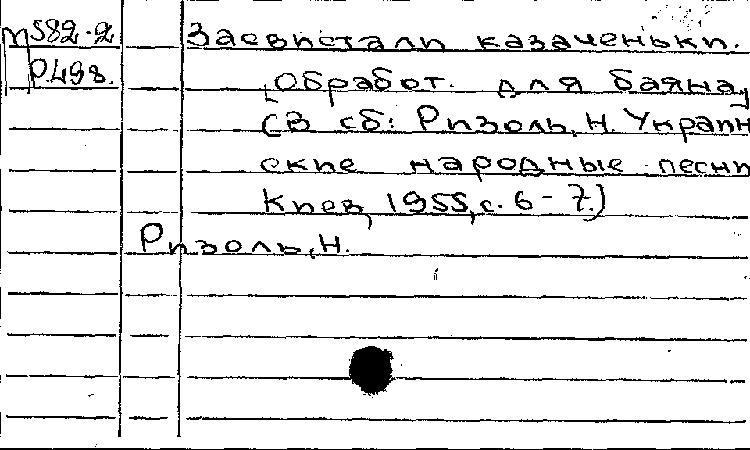 м582-2 Засвистали казаченьки.
Р498. [Обработ. для баяна]
(В сб: Ризоль, Н. Украин
ские народные песни
Киев, 1955, с. 6-7.)
Ризоль, Н.